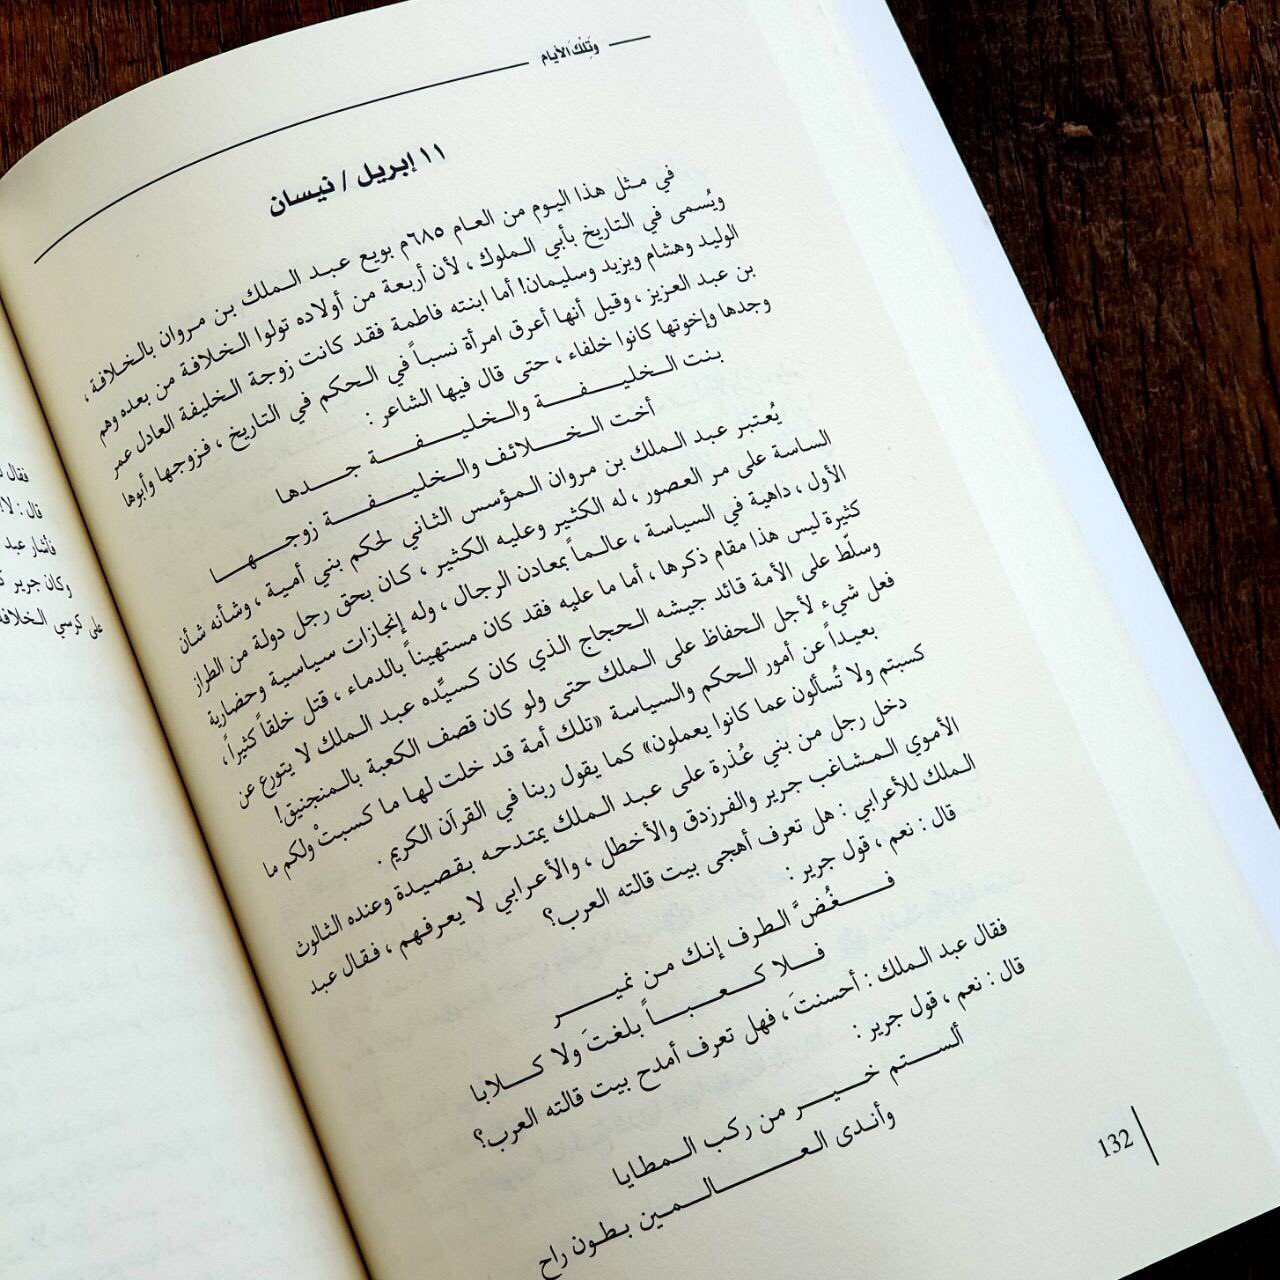 وَتِلْكَ الأيام
١١ إبريل / نيسان
في مثل هذا اليوم من العام ٦٨٥م بويع عبد الملك بن مروان بالخلافة ،
ويُسمى في التاريخ بأبي الملوك ، لأن أربعة من أولاده تولوا الخلافة من بعده وهم
الوليد وهشام ويزيد وسليمان! أما ابنته فاطمة فقد كانت زوجة الخليفة العادل عمر
بن عبد العزيز ، وقيل أنها أعرق امرأة نسباً في الحكم في التاريخ ، فزوجها وأبوها
وجدها وإخوتها كانوا خلفاء ، حتى قال فيها الشاعر :
بنت الخليفة والخليفة جدها
أخت الخلائف والخليفة زوجها
يُعتبر عبد الملك بن مروان المؤسس الثاني لحكم بني أمية ، وشأنه شأن
الساسة على مر العصور ، له الكثير وعليه الكثير ، كان بحق رجل دولة من الطراز
الأول ، داهية في السياسة ، عالماً بمعادن الرجال ، وله إنجازات سياسية وحضارية
كثيرة ليس هذا مقام ذكرها ، أما ما عليه فقد كان مستهيناً بالدماء ، قتل خلقاً كثيراً ،
وسلّط على الأمة قائد جيشه الحجاج الذي كان كسيّده عبد الملك لا يتورع عن
فعل شيء لأجل الحفاظ على الملك حتى ولو كان قصف الكعبة بالمنجنيق!
بعيداً عن أمور الحكم والسياسة «تلك أمة قد خلت لها ما كسبتْ ولكم ما
كسبتم ولا تُسألون عما كانوا يعملون» كما يقول ربنا في القرآن الكريم .
دخل رجل من بني عُذرة على عبد الملك يمتدحه بقصيدة وعنده الثالوث
الأموي المشاغب جرير والفرزدق والأخطل ، والأعرابي لا يعرفهم ، فقال عبد
الملك للأعرابي : هل تعرف أهجى بيت قالته العرب؟
قال : نعم ، قول جرير :
فغُضَّ الطرف إنك من نمير
فلا كعباً بلغتَ ولا كلابا
فقال عبد الملك : أحسنتَ ، فهل تعرف أمدح بيت قالته العرب؟
قال : نعم ، قول جرير :
ألستم خير من ركب المطايا
وأندى العالمين بطون راح
132
فقال
قال : لا
فأشار عبد
وكان جرير
على كرسي الخلافة